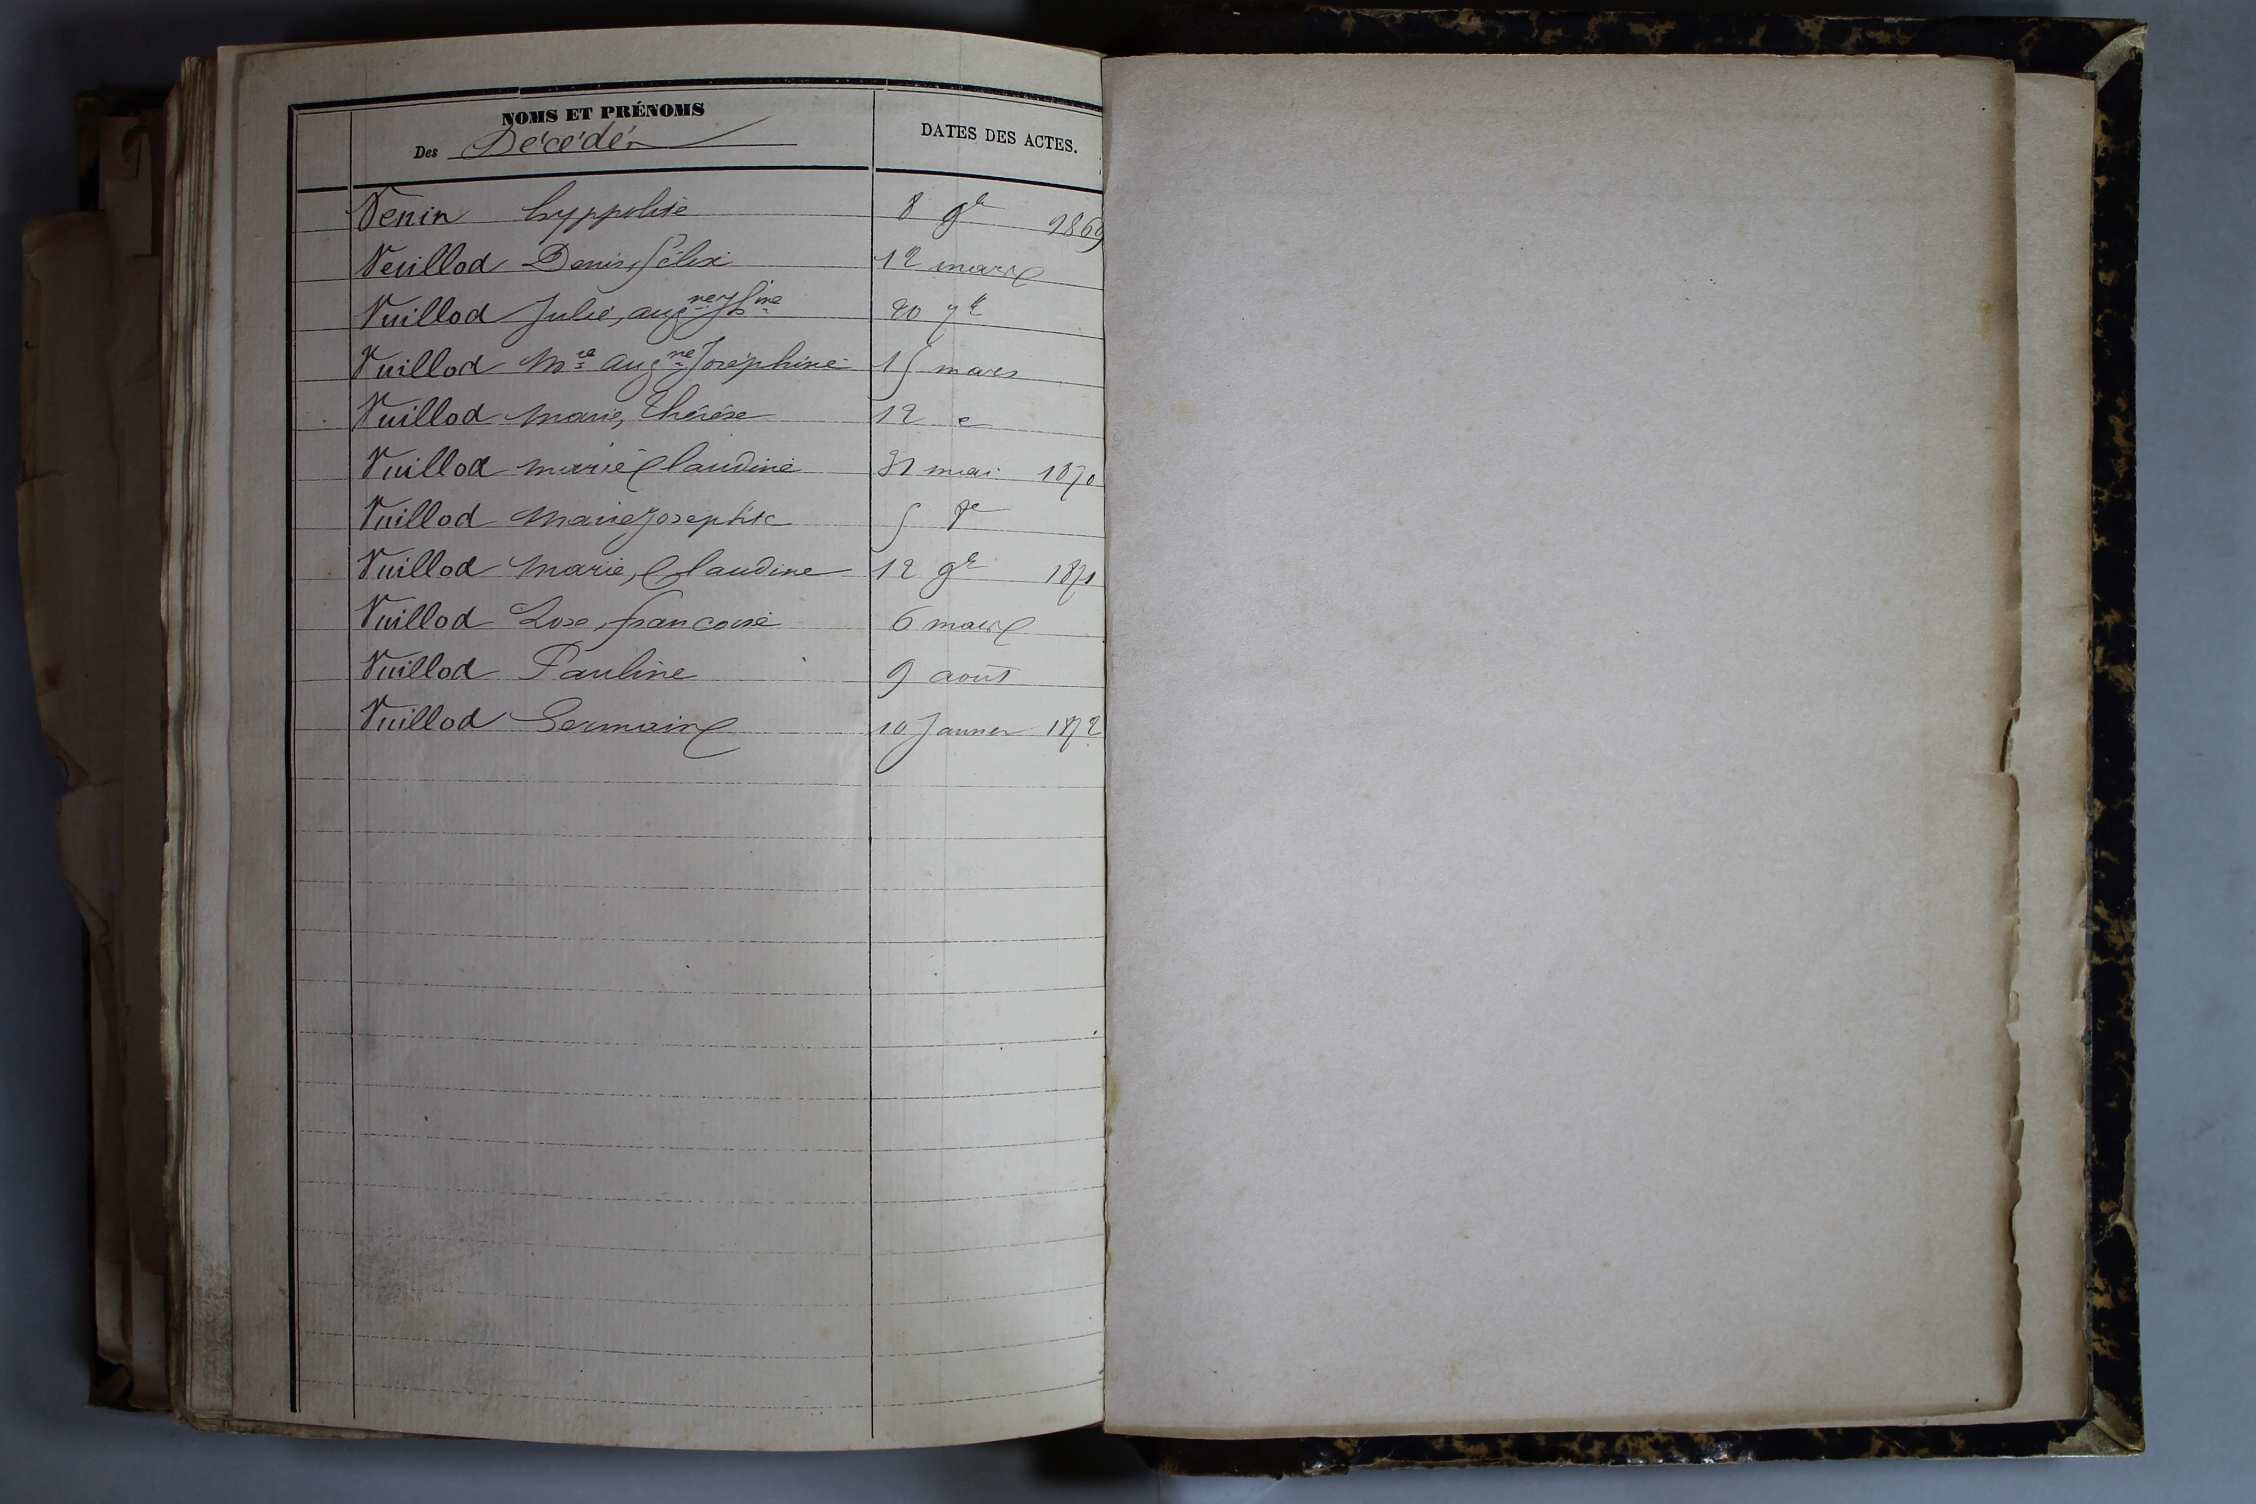 NOMS ET PRÉNOMS
Des Décédés
DATES DES ACTES.
Venin hyppolite 8 9e 1869
Veuillod Denis, félix 12 mars
Vuillod Julie, augne Jhine 20 7e
Vuillod Mie augne Joséphine 15 mars
Vuillod marie, thérèse 12 e
Vuillod marie Claudine 31 mai 1870
Vuillod Marie Josephte 5 7e
Vuillod Marie, Claudine 12 9e 1871
Vuillod françoise 6 mars
Vuillod Pauline 9 août
Vuillod Germain 10 Janvier 1872